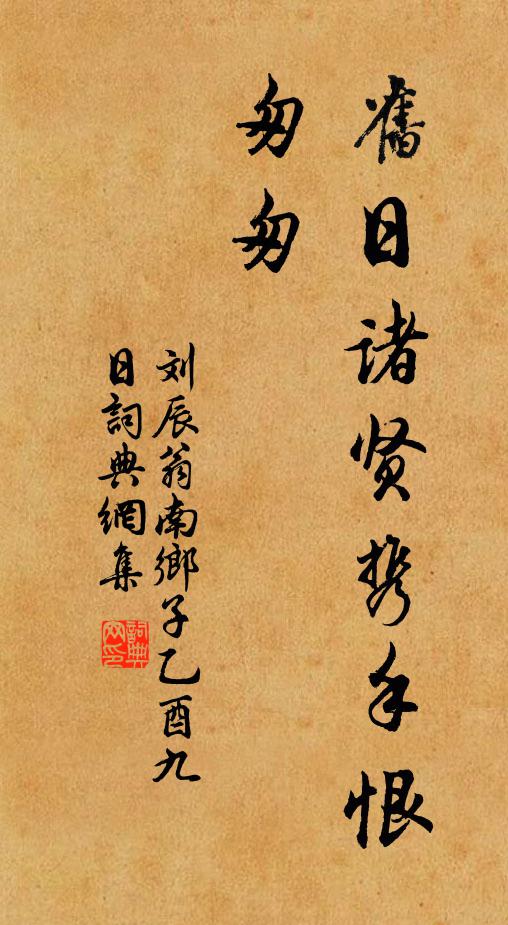 舊日诸贤携手恨
匆匆
刘辰翁南鄉子乙酉九
日詞典網集
詞典
网印